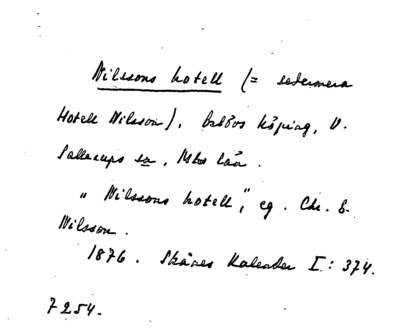 Nilssons hotell (= sedermera
Hotell Nilsson), Åstorps köping, V.
Sallerups sn, Mbs län.
"Nilssons hotell", eg. Chr. S.
Nilsson.
1876. Skånes Kalender I: 374.
7254.